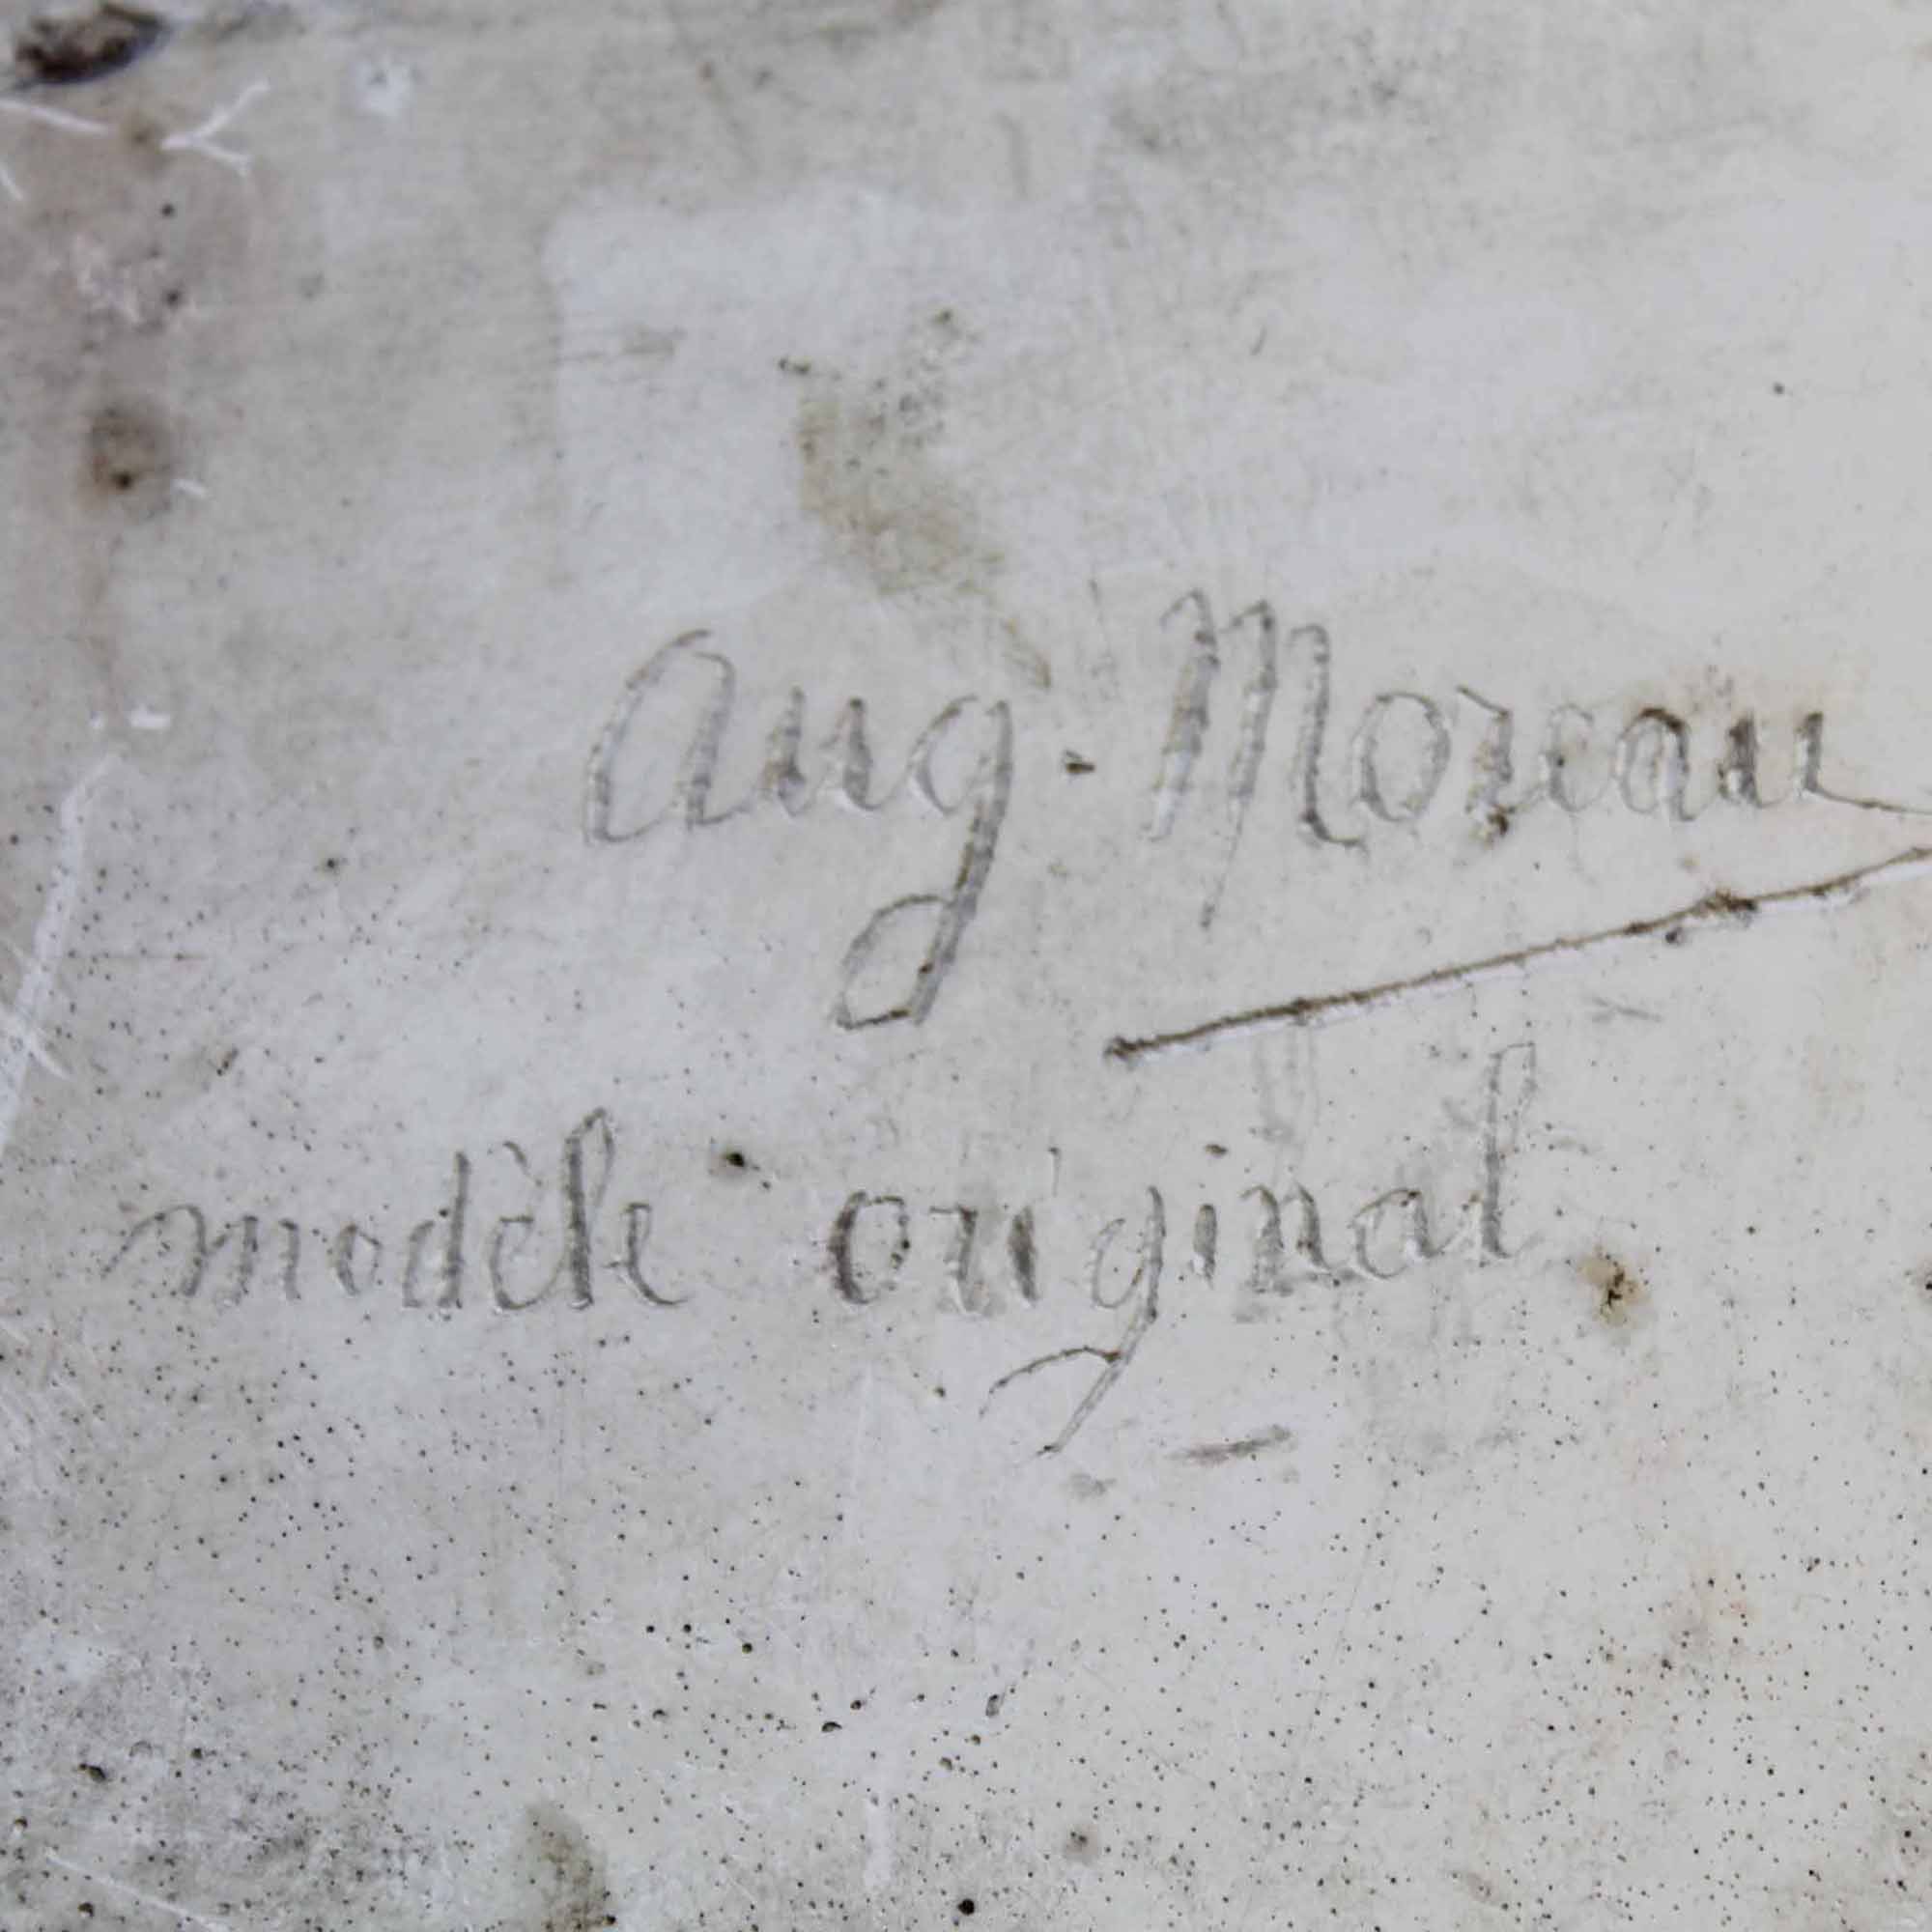 Aug. Moreau
modèle original